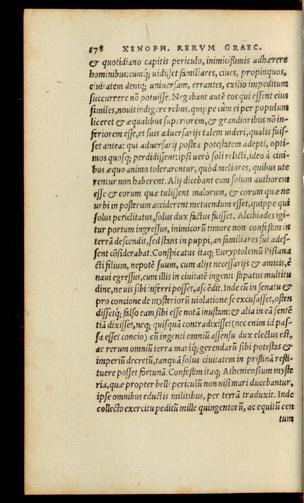 278 XENOPH. RERVM GRAEC.
& quotidiano capitis periculo, inimicissimis adhærere
hominibus: cunq́; uidisset familiares, ciues, propinquos,
ciuitatem deniq; uniuersam, errantes, exilio impeditum
succurrere nō potuisse. Negabant autē eos qui essent eius
similes, nouis indigere rebus, quippe cùm ei per populum
liceret & æqualibus superiorem, & grandioribus nō in-
feriorem esse, et suis aduersarijs talem uideri, qualis fuis-
set antea: qui aduersarij postea potestatem adepti, opti-
mos quosq; perdidissent: ipsi uerò soli relicti, ideo à ciui-
bus æquo animo tolerarentur, quòd meliores, quibus ute
rentur non haberent. Alij dicebant eum solum authorem
esse & eorum quæ tulissent malorum, & eorum quæ ne
urbi in posterum acciderent metuendum esset, quippe qui
solus periclitatus, solus dux factus fuisset. Alcibiades igi-
tur portum ingressus, inimicorū timore non confestim in
terrā descendit, sed stans in puppi, an familiares sui ades-
sent cōsiderabat. Conspicatus itaq; Euryptolemū Pisiana
cti filium, nepotē suum, cum alijs necessarijs & amicis, è
naui egressus, cum illis in ciuitatē ingenti stipatus multitu
dine, ne uis sibi inferri posset, ascēdit. Inde cū in senatu &
pro concione de mysteriorū uiolatione se excusasset, osten
dissetq́; falso eam sibi esse notā inustam: & alia in eā sentē
tiā dixisset, neq; quisquā contradixisset (nec enim id pas-
sa esset concio) cū ingenti omniū assensu dux electus est,
ac rerum omniū terra mariq; gerendarū sibi potestas &
imperiū decretū, tanquā solus ciuitatem in pristinā resti-
tuere posset fortunā. Confestim itaq; Atheniensium myste
ria, quæ propter belli periculū non nisi mari ducebantur,
ipse omnibus eductis militibus, per terrā traduxit. Inde
collecto exercitu peditū mille quingentorū, ac equitū cen
tum